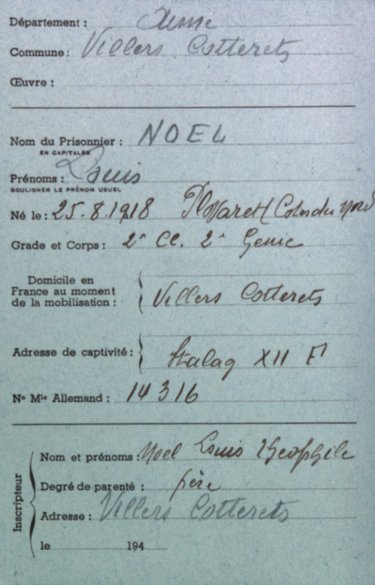 Département : Aisne
Commune : Villers Cotterets
Œuvre :
Nom du Prisonnier : NOEL
EN CAPITALES
Prénoms : Louis
SOULIGNER LE PRÉNOM USUEL
Né le : 25.8.1918 (Cotes du Nord
Grade et Corps : 2e Cl. 2e Genie
Domicile en
France au moment
de la mobilisation : Villers Cotterets
Adresse de captivité : Stalag XII F
No Mle Allemand : 14316
Inscripteur
Nom et prénoms : Noel Louis Theophile
Degré de parenté : père
Adresse : Villers Cotterets
le 194